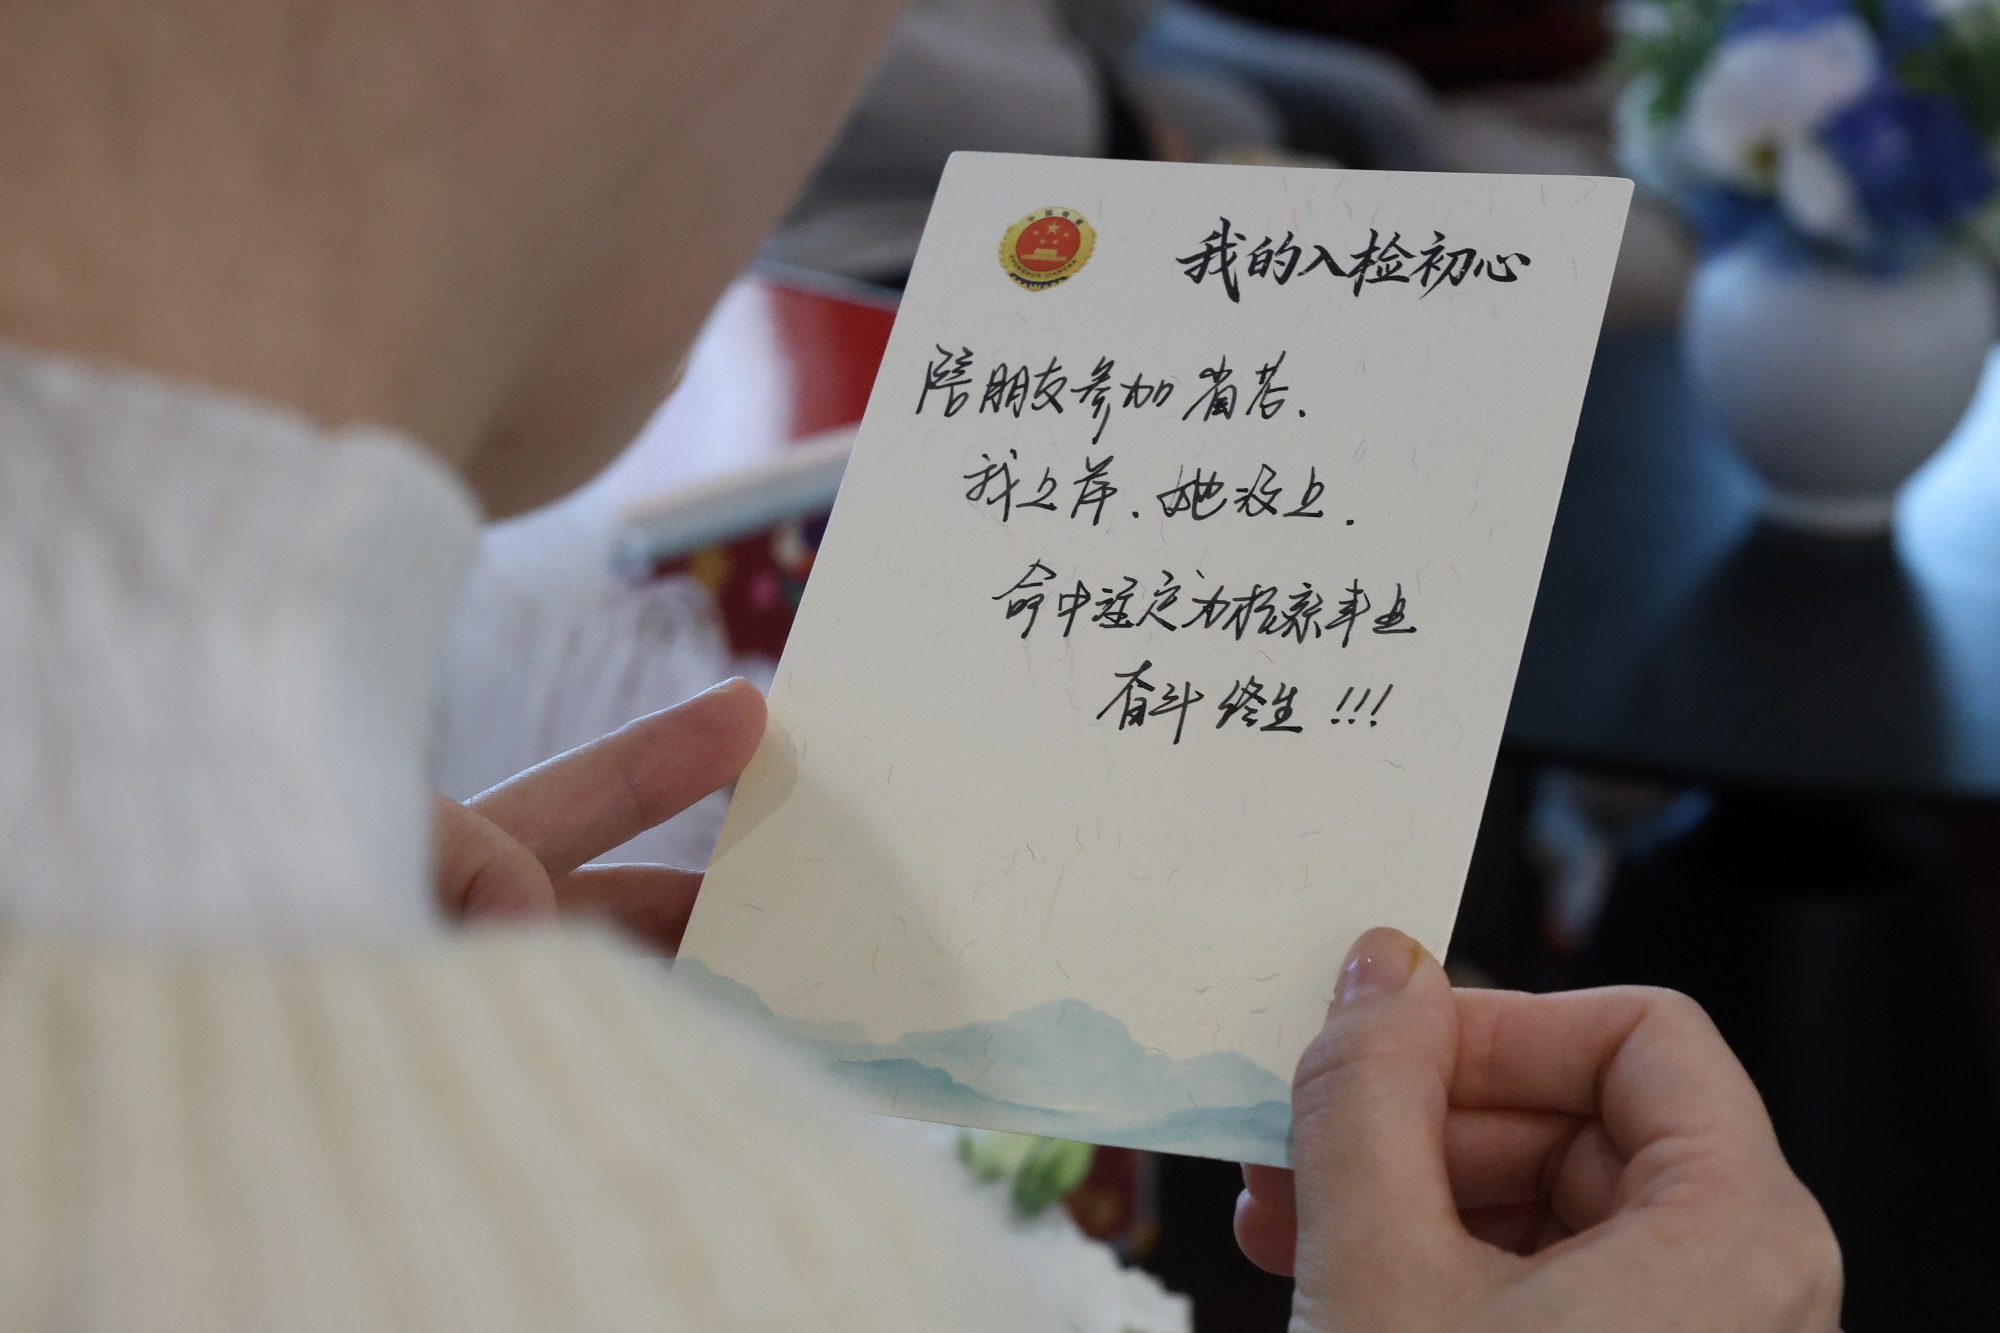 中国检察
我的入检初心
陪朋友参加省考.
我上岸.她没上.
命中注定为检察事业
奋斗终生!!!